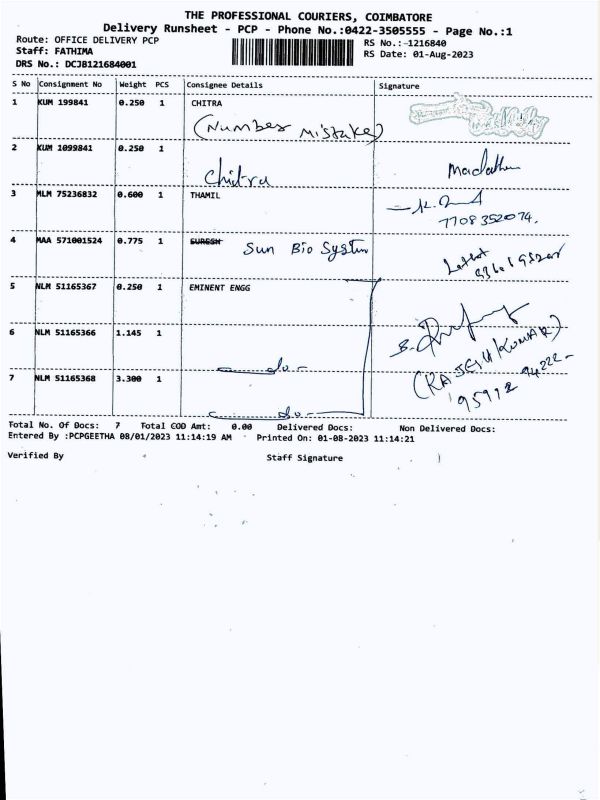 THE PROFESSIONAL COURIERS, COIMBATORE
Delivery Runsheet - PCP - Phone No.:0422-3505555 - Page No.:1
Route: OFFICE DELIVERY PCP
RS No.:-1216840
Staff: FATHIMA
RS Date: 01-Aug-2023
DRS No.: DCJB121684001
S No Consignment No Weight PCS Consignee Details Signature
1 KUM 199841 0.250 1 CHITRA
(Number Mistake)
2 KUM 1099841 0.250 1
Chitra
3 MLM 75236832 0.600 1 THAMIL
7708352074.
4 MAA 571001524 0.775 1 SURESH Sun Bio System
5 NLM 51165367 0.250 1 EMINENT ENGG
6 NLM 51165366 1.145 1
-do-
(RAJESH KUMAR)
7 NLM 51165368 3.300 1
95912 94222-
-do-
Total No. Of Docs: 7 Total COD Amt: 0.00 Delivered Docs: Non Delivered Docs:
Entered By :PCPGEETHA 08/01/2023 11:14:19 AM Printed On: 01-08-2023 11:14:21
Verified By Staff Signature